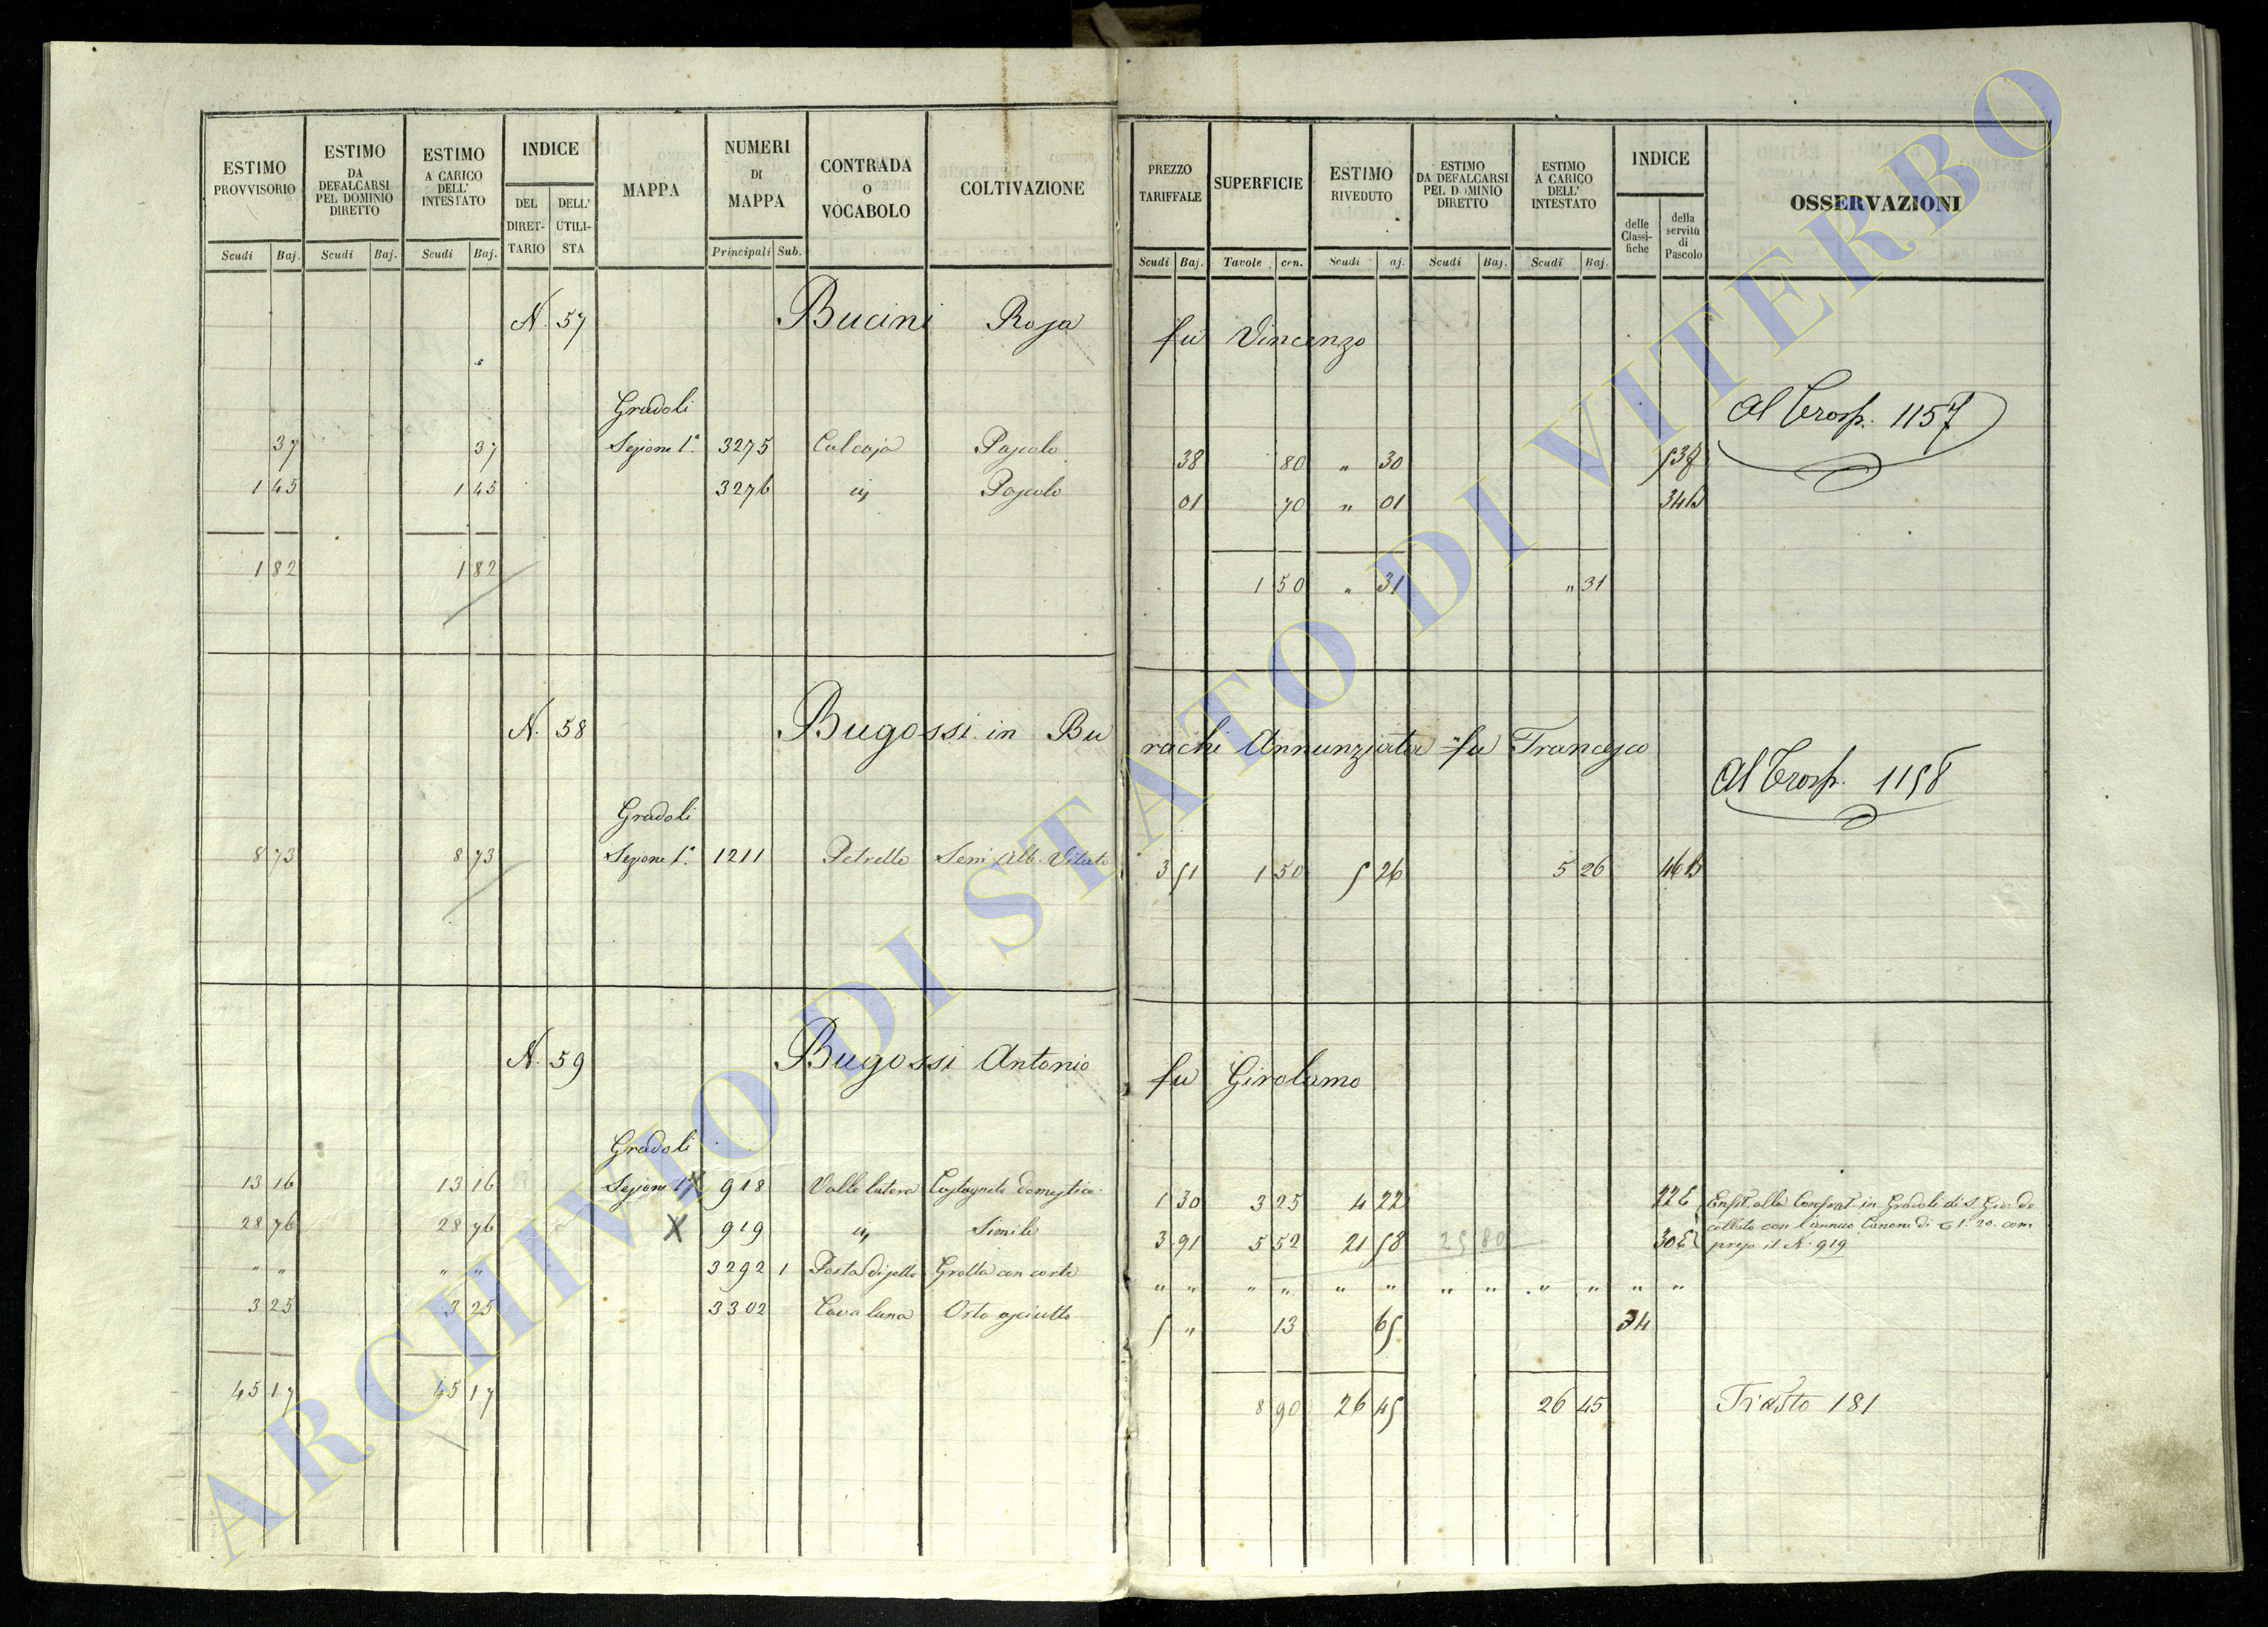 ESTIMO PROVVISORIO | ESTIMO DA DEFALCARSI PEL DOMINIO DIRETTO | ESTIMO A CARICO DELL' INTESTATO | INDICE | MAPPA | NUMERI DI MAPPA | CONTRADA O VOCABOLO | COLTIVAZIONE | PREZZO TARIFFALE | SUPERFICIE | ESTIMO RIVEDUTO | ESTIMO DA DEFALCARSI PEL DOMINIO DIRETTO | ESTIMO A CARICO DELL' INTESTATO | INDICE | OSSERVAZIONI
DEL DIRET-TARIO | DELL' UTILI-STA | delle Classi-fiche | della servitù di Pascolo
Scudi | Baj. | Scudi | Baj. | Scudi | Baj. | Principali | Sub. | Scudi | Baj. | Tavole | cen. | Scudi | aj. | Scudi | Baj. | Scudi | Baj.
N. 57 Bucini Rosa fu Vincenzo
Gradoli
Al Trasp. 1157
37 | 37 | Sezione 1ª | 3275 | Calcaja | Pascolo | 38 | 80 | " 30
1 45 | 1 45 | 3276 | ivi | Pascolo | 01 | 70 | " 01
1 82 | 1 82 | 1 50 | " 31 | " 31
N. 58 Bugossi in Burachi Annunziata fu Francesco
Al Trasp. 1158
Gradoli
8 73 | 8 73 | Sezione 1ª | 1211 | Petrella | Sem Alb. Vitato | 3 51 | 1 50 | 5 26 | 5 26
N. 59 Bugossi Antonio fu Girolamo
Gradoli
13 16 | 13 16 | Sezione 1ª X | 918 | Valle latera | Castagneto domestico | 1 30 | 3 25 | 4 22 | 22 E | Enfit. alla Confrat. in Gradoli di S. Gio. De
28 76 | 28 76 | X | 919 | ivi | Simile | 3 91 | 5 52 | 21 58 | 25 80 | 30 E | collato con l'annuo Canone di 1. 20. com
preso il N. 919
" " | " " | 3292 | 1 | Grotta con corte | " " | " " | " " | " " | " " | " "
3 25 | 3 25 | 3302 | Cava luna | Orto asciutto | 5 " | 13 | 65 | 34
45 17 | 45 17 | 8 90 | 26 45 | 26 45 | 181
ARCHIVIO DI STATO DI VITERBO